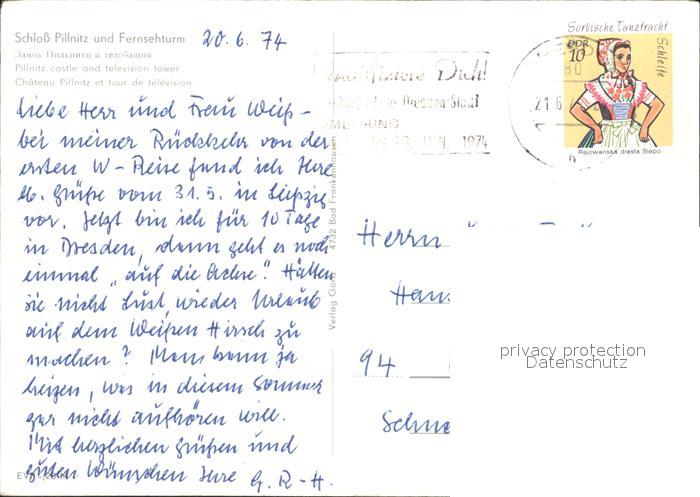 Schloß Pillnitz und Fernsehturm
Замок Пильнитц и телебашня
Pillnitz castle and television tower
Château Pillnitz et tour de télévision
20.6.74
Liebe Herr und Frau Weiß –
bei meiner Rückkehr von der
ersten W-Reise fand ich Ihre
lb. Grüße vom 31.5. in Leipzig
vor. Jetzt bin ich für 10 Tage
in Dresden, dann geht es noch
einmal „auf die Achse". Hätten
Sie nicht Lust, wieder Urlaub
auf dem Weißen Hirsch zu
machen? Man kann ja
heizen, was in diesem Sommer
gar nicht aufhören will.
Mit herzlichen Grüßen und
guten Wünschen Ihre G. R-H.
Verlag Görtz 4732 Bad Frankenhausen
Dich!
Dresden-Stadt
1974
21.6.
Sorbische Tanztracht
Schleife
DDR
10
Rejowanska drasta Slepo
Herrn
Hans
94
Schne
privacy protection
Datenschutz